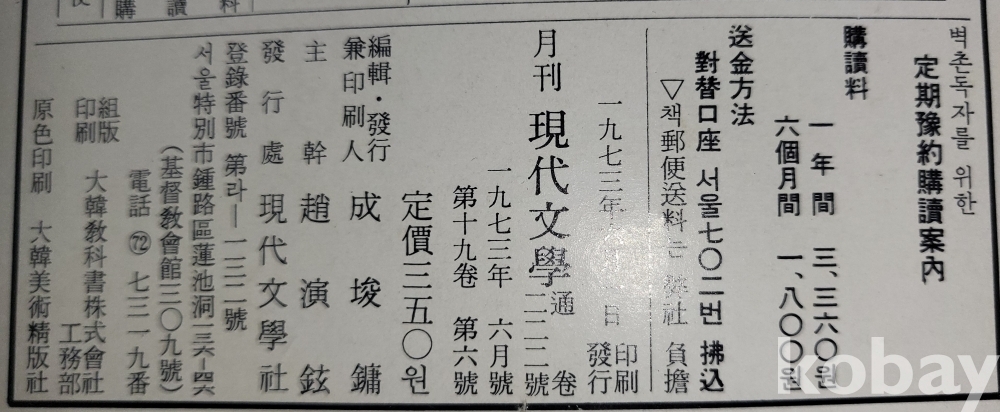 벽촌독자를 위한
定期豫約購讀案內
購讀料
一年間 三、三六〇원
六個月間 一、八〇〇원
送金方法
對替口座 서울七〇二번 拂込
▽책郵便送料는 社 負擔
一九七三年 日 印刷 發行
月刊 現代文學 通 二二二號 卷
一九七三年 六月號
第十九卷 第六號
定價三五〇원
編輯·發行
兼印刷人 成埈鏞
主幹 趙演鉉
發行處 現代文學社
登錄番號 第라—一三二號
서울特別市鍾路區蓮池洞一三六—四六
(基督敎會館三〇九號)
電話 72 七三一九番
組版
印刷 大韓敎科書株式會社
工務部
原色印刷 大韓美術精版社
kobay